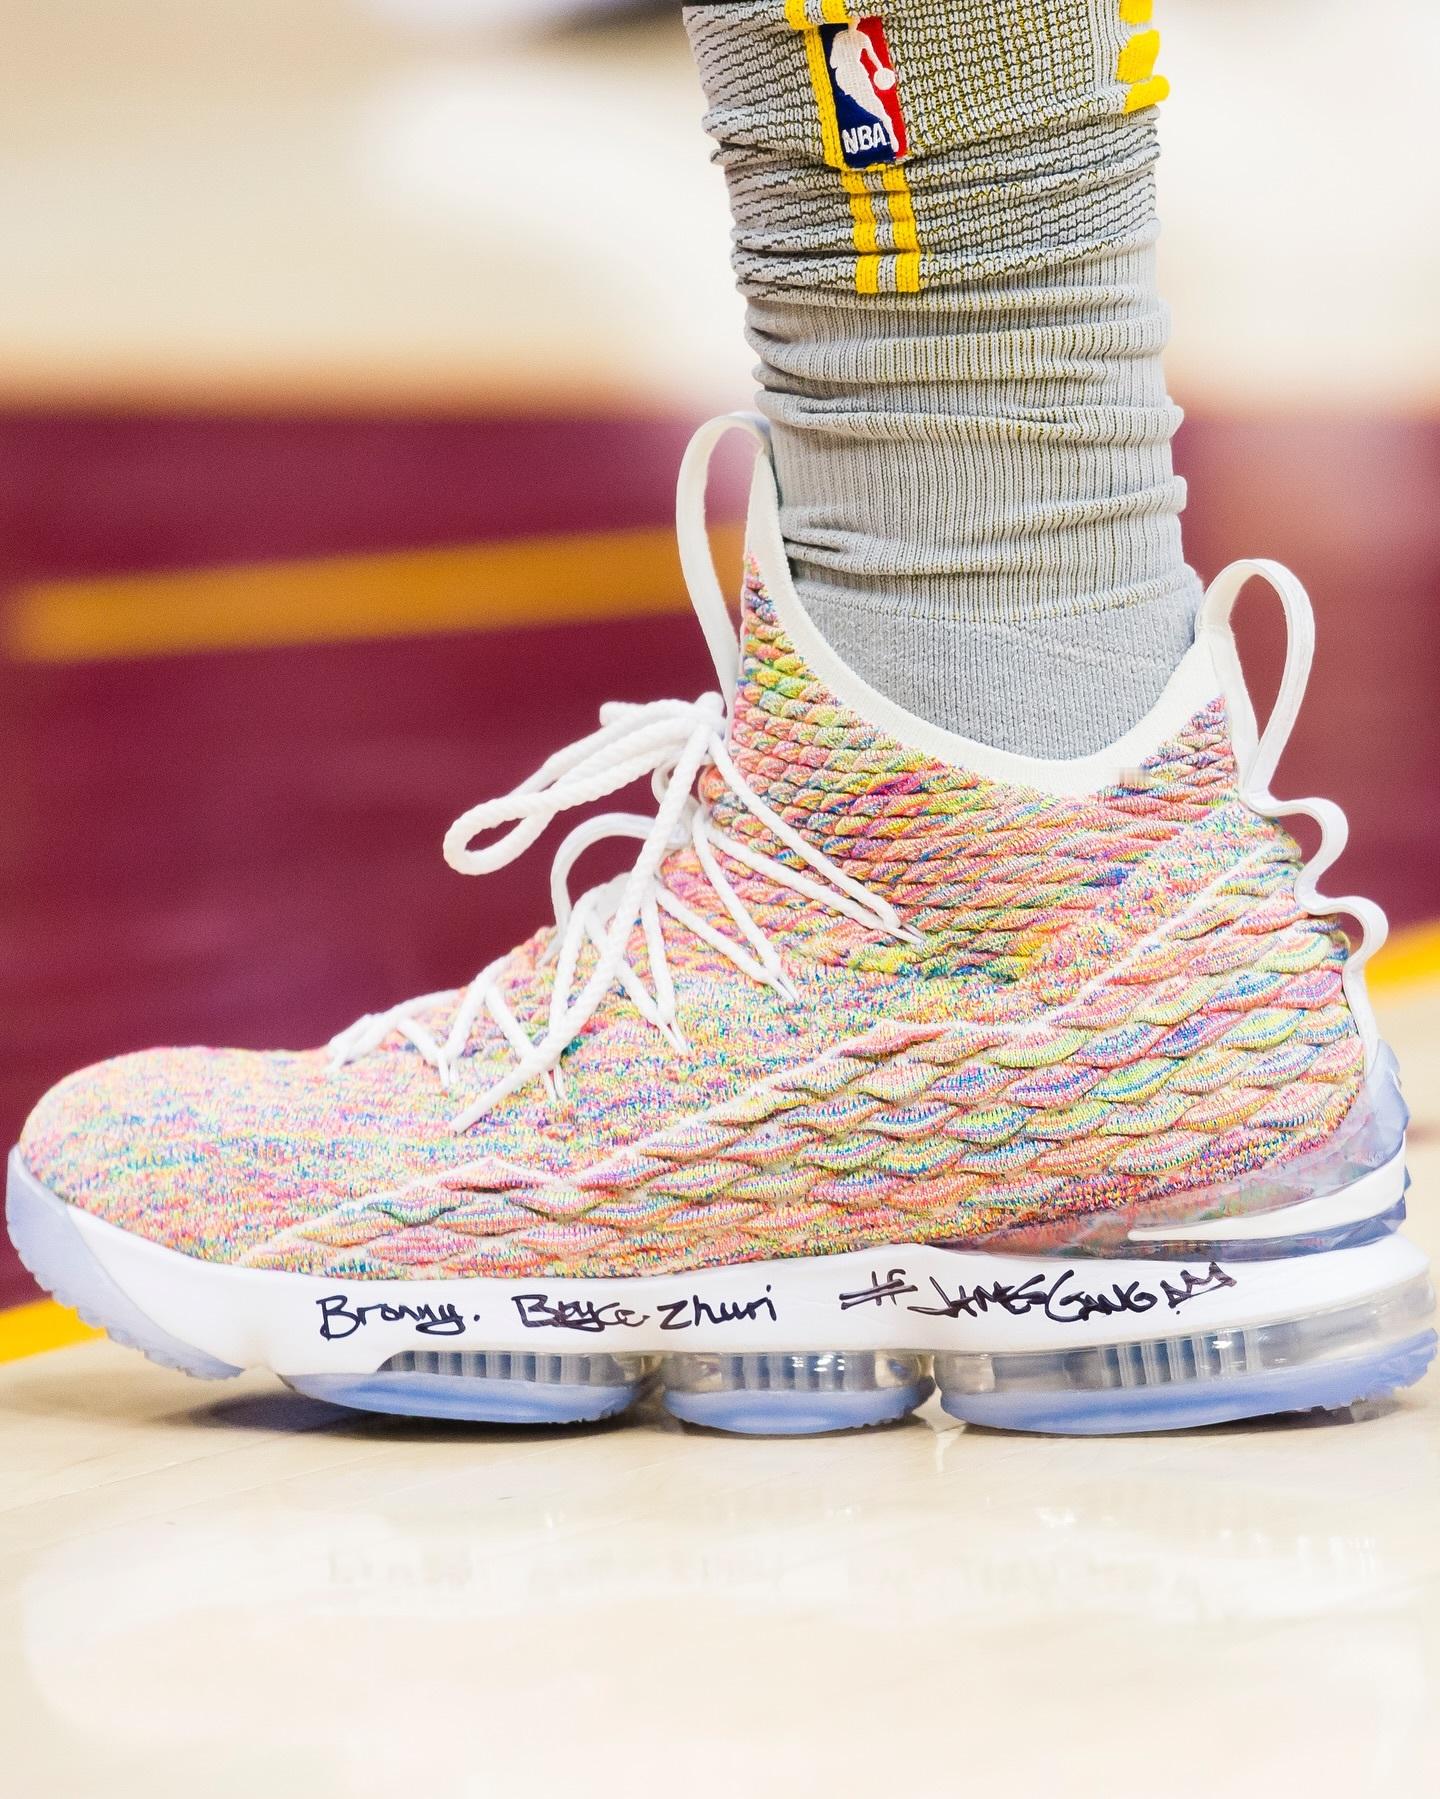 NBA
Bronny. Bryce Zhuri #JAMESGANG